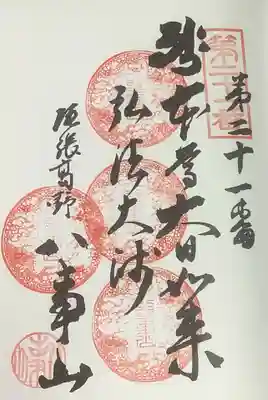 第二十一番
本尊大日如来
弘法大師
尾張高野
八事山